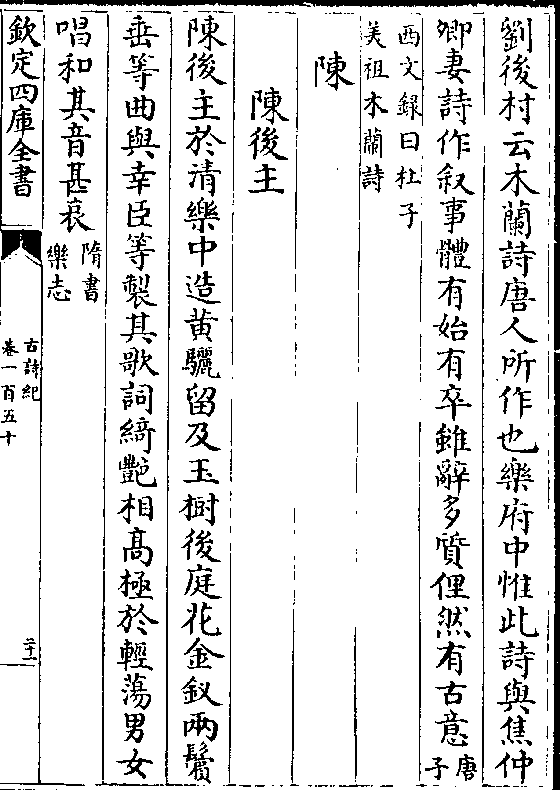 劉後村云木蘭詩唐人所作也樂府中惟此詩與焦仲
卿妻詩作叙事體有始有卒雖辭多質俚然有古意唐子
西文録曰杜子
美祖木蘭詩
陳
陳後主
陳後主於清樂中造黄驪留及玉樹後庭花金釵兩鬢
垂等曲與幸臣等製其歌詞綺艷相髙極於輕蕩男女
唱和其音甚哀隋書
樂志
欽定四庫全書
古詩紀
卷一百五十
二十一